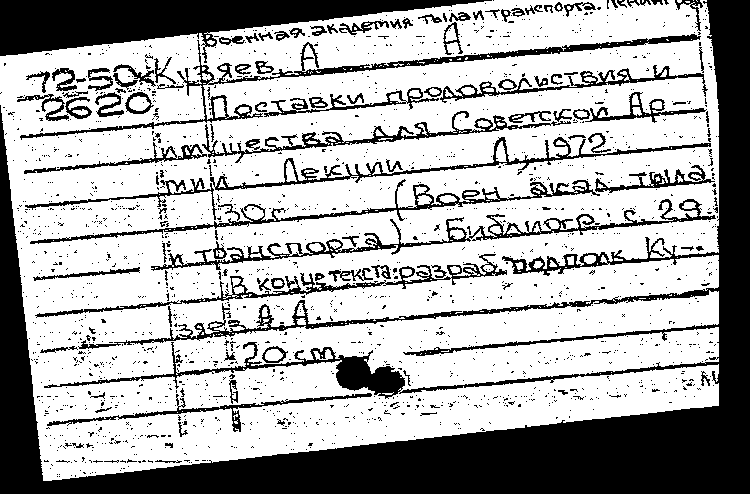 Военная академия тыла и транспорта.
72-50 Кузяев, А А
2620 Поставки продовольствия и
имущества для Советской Ар-
мии. Лекции. Л., 1972.
30с. (Воен. акад. тыла
и транспорта). Библиогр: с. 29
В конце текста: разраб. подполк. Ку-
зяев А.А.
20 cm.